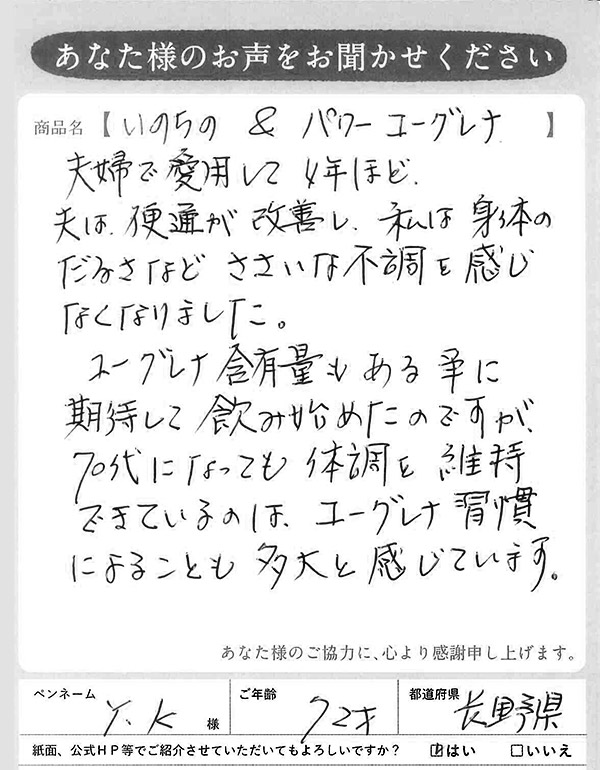 あなた様のお声をお聞かせください
商品名【いのちの & パワーユーグレナ 】
夫婦で愛用して4年ほど.
夫は、便通が改善し、私は身体の
だるさなどささいな不調を感じ
なくなりました。
ユーグレナ含有量もある事に
期待して飲み始めたのですが、
70代になっても体調を維持
できているのは、ユーグレナ習慣
によることも多大と感じています。
あなた様のご協力に、心より感謝申し上げます。
ペンネーム Y.K 様 ご年齢 72才 都道府県 長野県
紙面、公式HP等でご紹介させていただいてもよろしいですか? ☑はい □いいえ